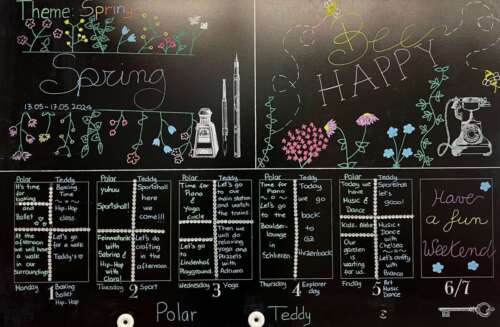 Theme: Spring
Spring
13.05-17.05.2024
Bee
HAPPY
Polar
It's time
for
baking
and
Ballet
At the
afternoon
we will have
a walk
in our
surroundings
Teddy
Baking
Time
and
Hip-Hop
class.
Let's go
for a walk
Teddy's
Monday
1
Baking
Ballet
Hip-Hop
Polar
yuhuu
Sportshall
Feinmotorik
with
Sabrina &
Hip-Hop
with
Carol
Teddy
Sportshall
here
we
come!!!
Let's do
crafting
in the
afternoon
Tuesday
2
Sport
Polar
Time for
Piano
&
Yoga
circle
Let's go
to
Lindenhof
Playground
Teddy
Let's go
to our
main station
and watch
the trains.
Then we
will do
relaxing
yoga and
Puzzels
with
Adriana
Wednesday
3
Yoga
Polar
Time for
Piano
Let's go
to the
Boulder-
lounge
in
Schlieren
Teddy
Today
we go
back
to
GZ
Hirzenbach
Thursday
4
Explorer
day
Polar
Today we
have
Music
&
Dance
Our
gestein
is
waiting
for us.
Teddy
Sportshall
let's
gooo!
Music &
Dance
with
Chelsea
Let's crafty
with
Bianca
Friday
5
Art
Music
Dance
Have
a fun
Weekend!
6/7
Polar
Teddy